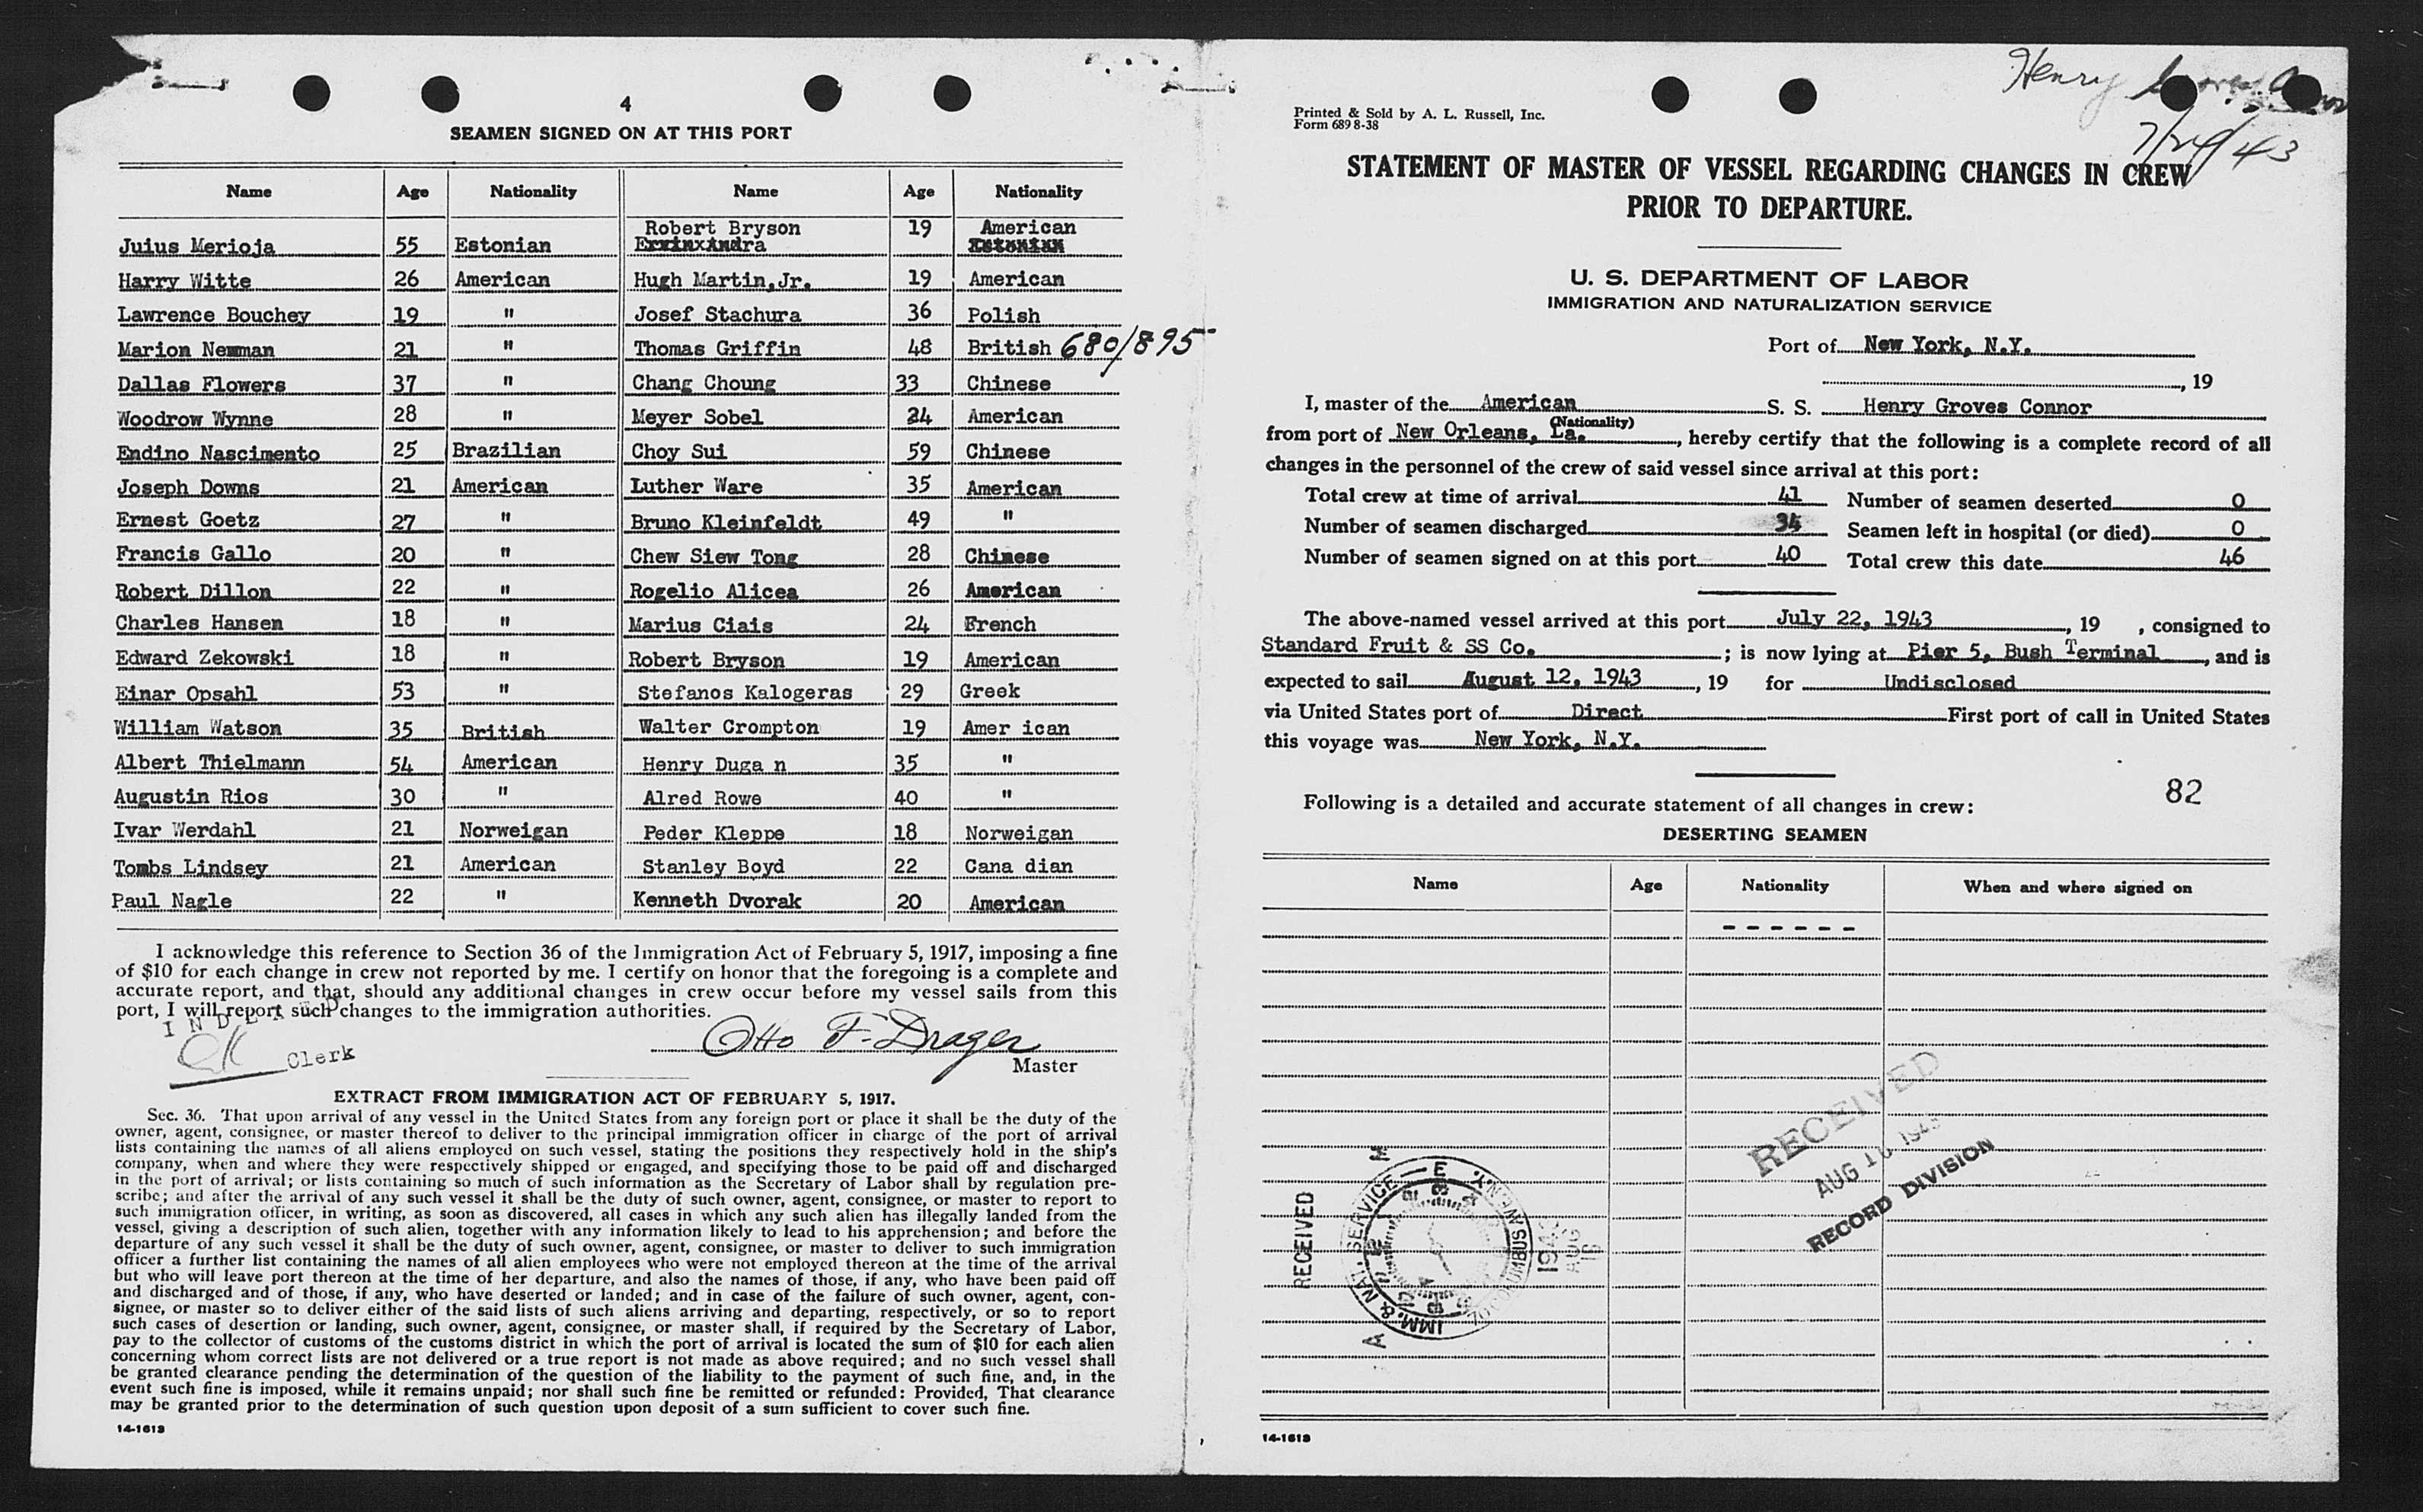 4
SEAMEN SIGNED ON AT THIS PORT
Name Age Nationality Name Age Nationality
Robert Bryson 19 American
Juius Merioja 55 Estonian
Harry Witte 26 American Hugh Martin,Jr. 19 American
Lawrence Bouchey 19 " Josef Stachura 36 Polish
Marion Newman 21 " Thomas Griffin 48 British 680/895
Dallas Flowers 37 " Chang Choung 33 Chinese
Woodrow Wynne 28 " Meyer Sobel 24 American
Endino Nascimento 25 Brazilian Choy Sui 59 Chinese
Joseph Downs 21 American Luther Ware 35 American
Ernest Goetz 27 " Bruno Kleinfeldt 49 "
Francis Gallo 20 " Chew Siew Tong 28 Chinese
Robert Dillon 22 " Rogelio Alicea 26 American
Charles Hansen 18 " Marius Ciais 24 French
Edward Zekowski 18 " Robert Bryson 19 American
Einar Opsahl 53 " Stefanos Kalogeras 29 Greek
William Watson 35 British Walter Crompton 19 Amer ican
Albert Thielmann 54 American Henry Duga n 35 "
Augustin Rios 30 " Alred Rowe 40 "
Ivar Werdahl 21 Norweigan Peder Kleppe 18 Norweigan
Tombs Lindsey 21 American Stanley Boyd 22 Cana dian
Paul Nagle 22 " Kenneth Dvorak 20 American
I acknowledge this reference to Section 36 of the Immigration Act of February 5, 1917, imposing a fine
of $10 for each change in crew not reported by me. I certify on honor that the foregoing is a complete and
accurate report, and that, should any additional changes in crew occur before my vessel sails from this
port, I will report such changes to the immigration authorities.
INDEXED
OK Clerk
Otto F. Drager
Master
EXTRACT FROM IMMIGRATION ACT OF FEBRUARY 5, 1917.
Sec. 36. That upon arrival of any vessel in the United States from any foreign port or place it shall be the duty of the
owner, agent, consignee, or master thereof to deliver to the principal immigration officer in charge of the port of arrival
lists containing the names of all aliens employed on such vessel, stating the positions they respectively hold in the ship's
company, when and where they were respectively shipped or engaged, and specifying those to be paid off and discharged
in the port of arrival; or lists containing so much of such information as the Secretary of Labor shall by regulation pre-
scribe; and after the arrival of any such vessel it shall be the duty of such owner, agent, consignee, or master to report to
such immigration officer, in writing, as soon as discovered, all cases in which any such alien has illegally landed from the
vessel, giving a description of such alien, together with any information likely to lead to his apprehension; and before the
departure of any such vessel it shall be the duty of such owner, agent, consignee, or master to deliver to such immigration
officer a further list containing the names of all alien employees who were not employed thereon at the time of the arrival
but who will leave port thereon at the time of her departure, and also the names of those, if any, who have been paid off
and discharged and of those, if any, who have deserted or landed; and in case of the failure of such owner, agent, con-
signee, or master so to deliver either of the said lists of such aliens arriving and departing, respectively, or so to report
such cases of desertion or landing, such owner, agent, consignee, or master shall, if required by the Secretary of Labor,
pay to the collector of customs of the customs district in which the port of arrival is located the sum of $10 for each alien
concerning whom correct lists are not delivered or a true report is not made as above required; and no such vessel shall
be granted clearance pending the determination of the question of the liability to the payment of such fine, and, in the
event such fine is imposed, while it remains unpaid; nor shall such fine be remitted or refunded: Provided, That clearance
may be granted prior to the determination of such question upon deposit of a sum sufficient to cover such fine.
14-1613
Henry
7/24/43
Printed & Sold by A. L. Russell, Inc.
Form 689 8-38
STATEMENT OF MASTER OF VESSEL REGARDING CHANGES IN CREW
PRIOR TO DEPARTURE.
U. S. DEPARTMENT OF LABOR
IMMIGRATION AND NATURALIZATION SERVICE
Port of New York, N.Y.
, 19
I, master of the American S. S. Henry Groves Connor
(Nationality)
from port of New Orleans, La. , hereby certify that the following is a complete record of all
changes in the personnel of the crew of said vessel since arrival at this port:
Total crew at time of arrival 41 Number of seamen deserted 0
Number of seamen discharged 34 Seamen left in hospital (or died) 0
Number of seamen signed on at this port 40 Total crew this date 46
The above-named vessel arrived at this port July 22, 1943 , 19 , consigned to
Standard Fruit & SS Co. ; is now lying at Pier 5, Bush Terminal , and is
expected to sail August 12, 1943 , 19 for Undisclosed
via United States port of Direct First port of call in United States
this voyage was New York, N.Y.
82
Following is a detailed and accurate statement of all changes in crew:
DESERTING SEAMEN
Name Age Nationality When and where signed on
- - - - - -
RECEIVED
AUG 10 1943
RECORD DIVISION
RECEIVED
IMM. & NAT. SERVICE
14-1613